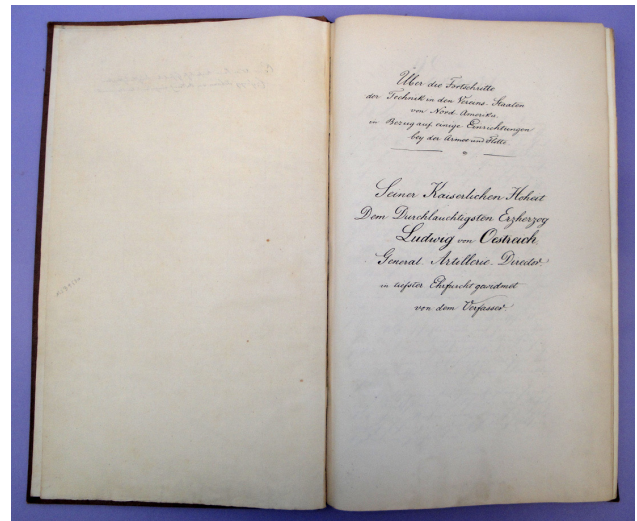 Über die Fortschritte
der Technik in den Vereins-Staaten
von Nord-Amerika
in Bezug auf einige Einrichtungen
bey der Armee und Flotte.
Seiner Kaiserlichen Hoheit
Dem Durchlauchtigsten Erzherzog
Ludwig von Oestreich
General-Artillerie-Director
in tiefster Ehrfurcht gewidmet
von dem Verfasser.